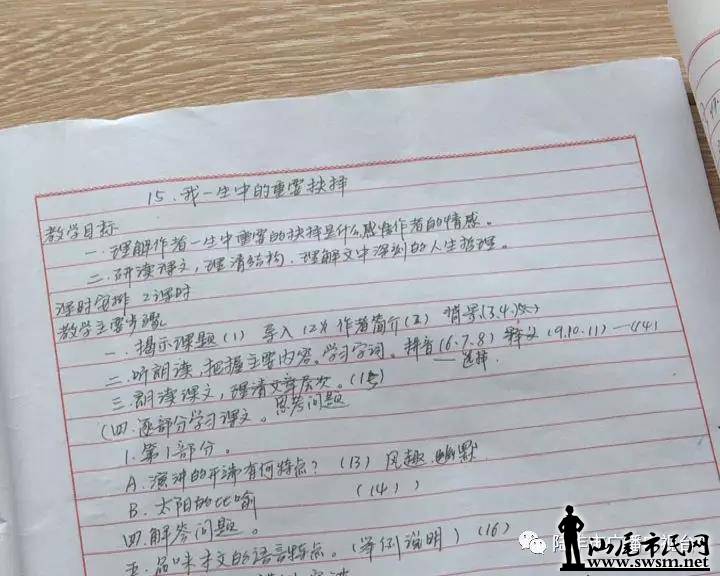 15.我一生中的重要抉择
教学目标
一.理解作者一生中重要的抉择是什么感悟作者的情感。
二.研读课文,理清结构.理解文中深刻的人生哲理。
课时安排 2课时
教学主要步骤
一.揭示课题(1) 导入(2) 作者简介(3) 背景(3.4.5)
二.听朗读.把握主要内容。学习字词。拼音(6.7.8) 释义(9.10.11)—(44)
选择.
三.朗读课文,理清文章层次。(12)
(四.逐部分学习课文。思考问题
1.第1部分。
A.演讲的开端有何特点? (13) 风趣.幽默
B.太阳的比喻 (14)
四.解答问题。
五.品味本文的语言特点。(举例说明)(16)
汕尾市民网
www.swsm.net